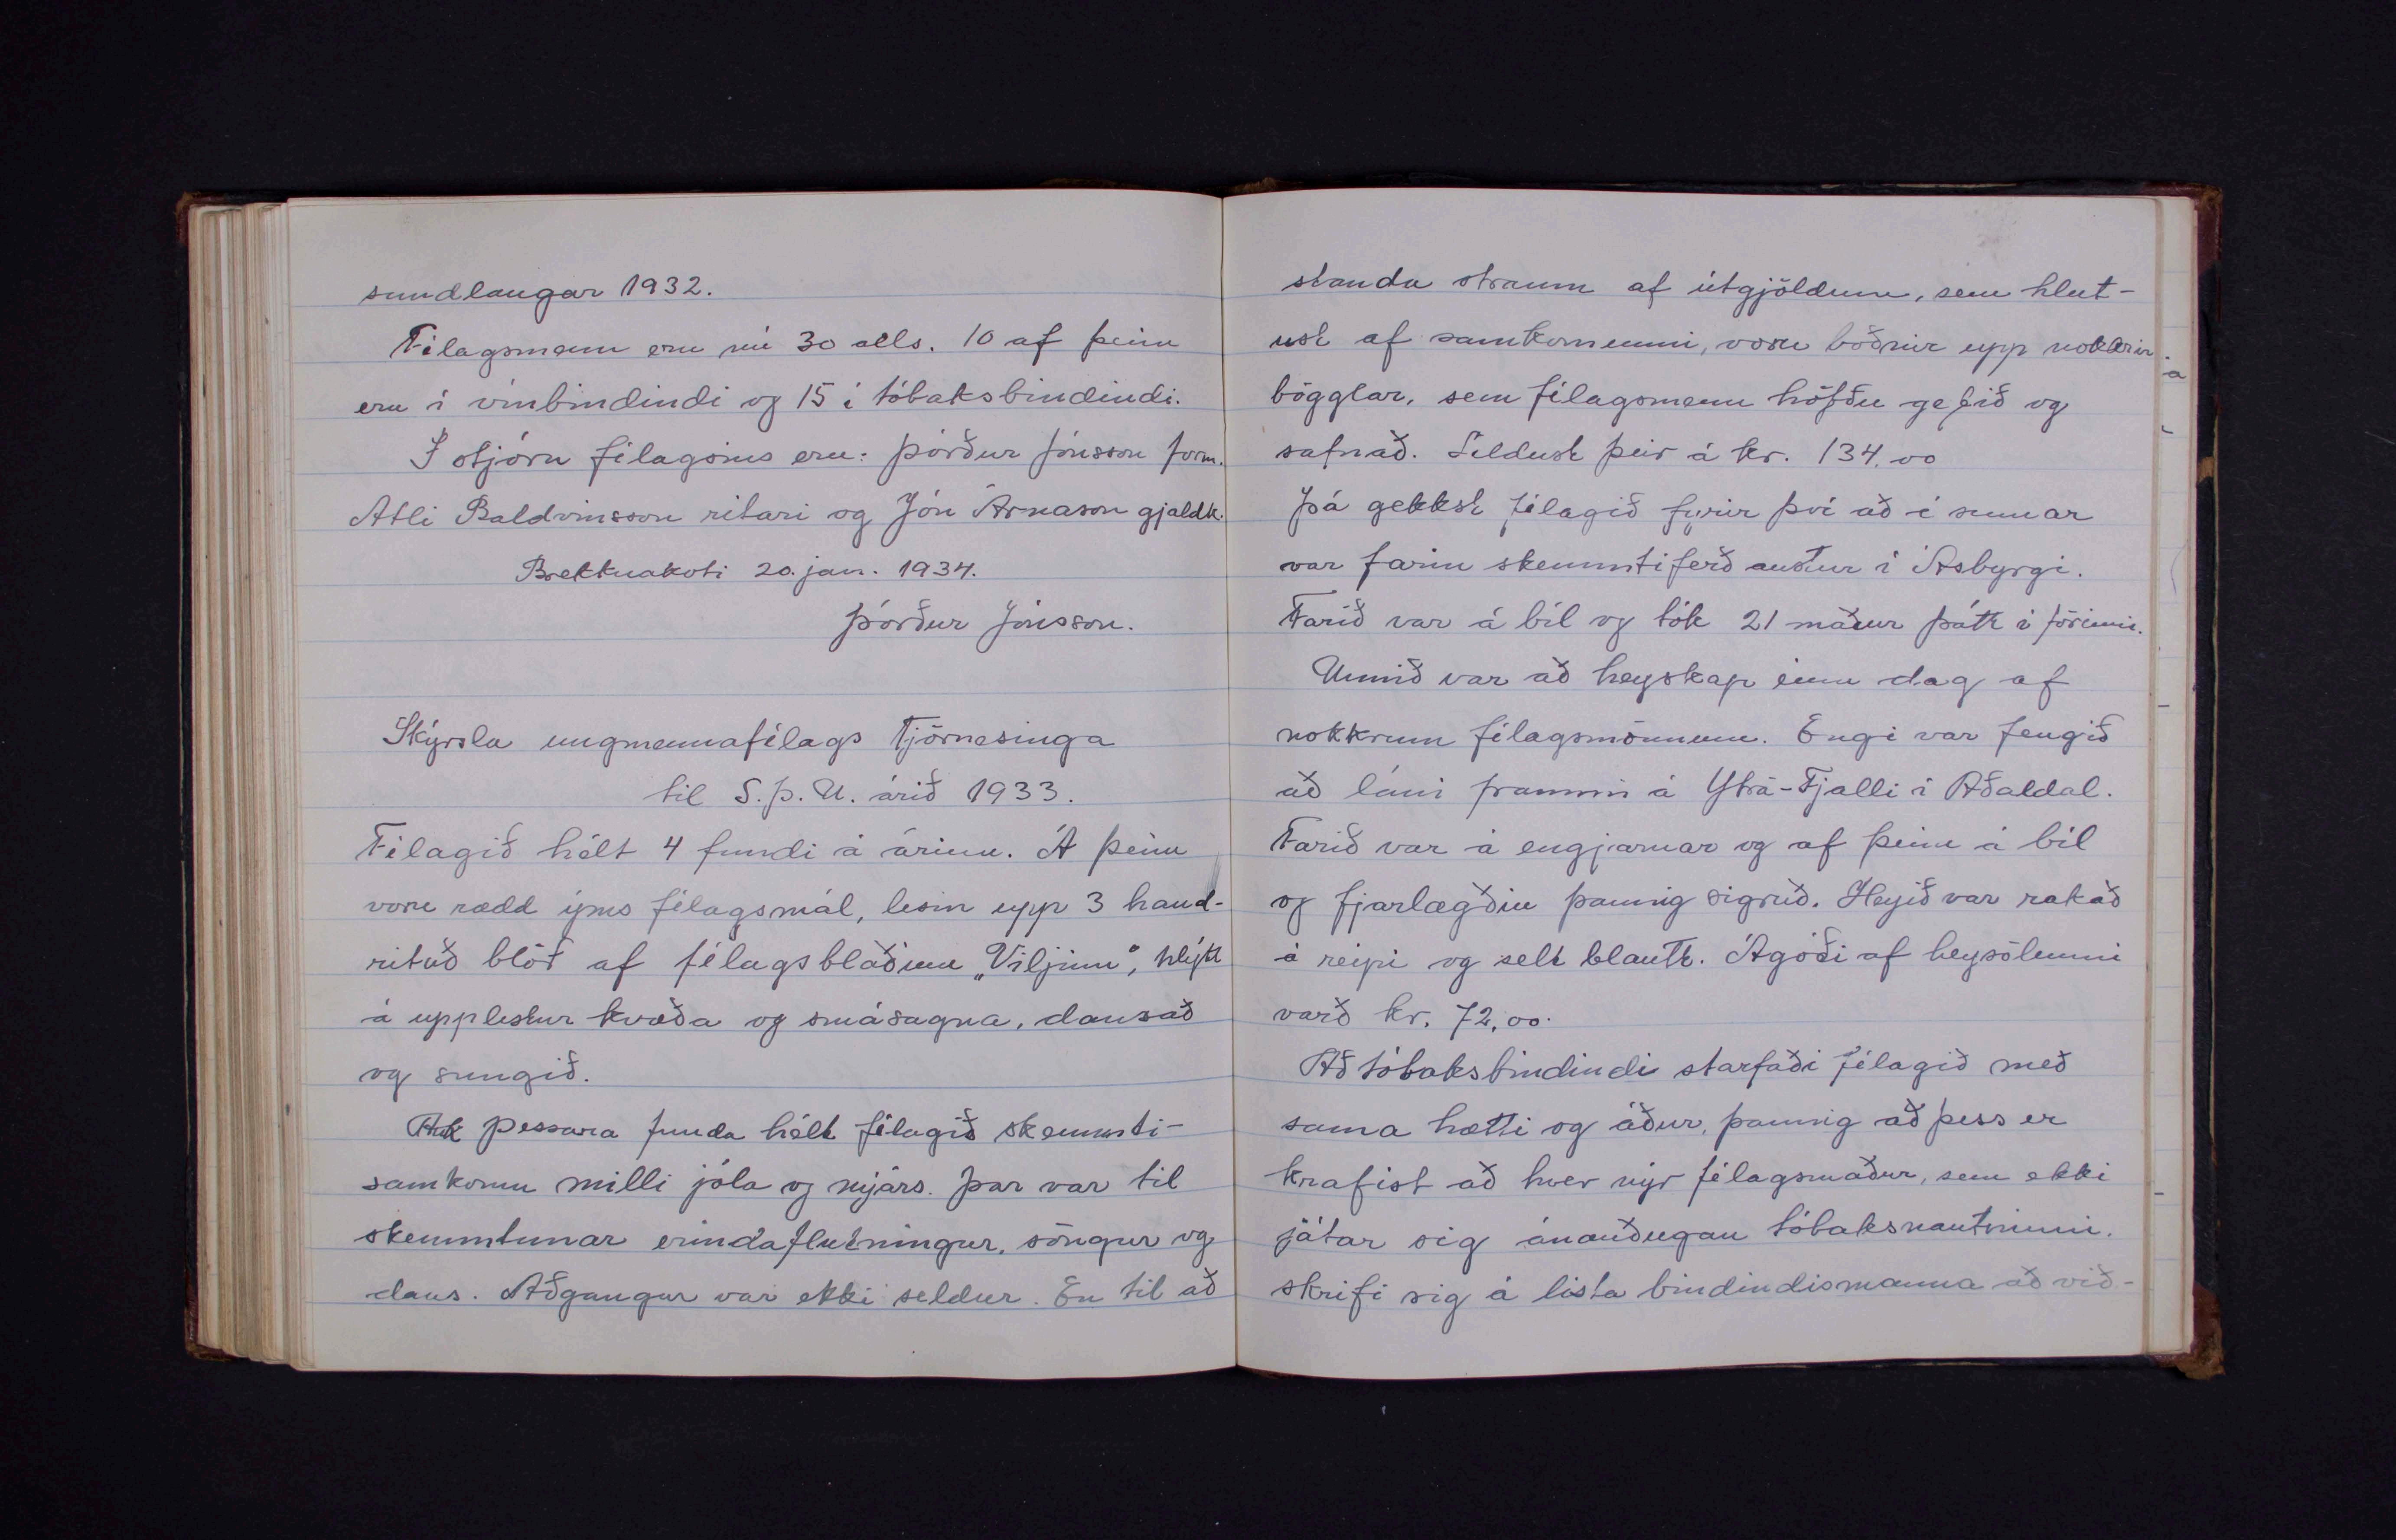 sundlaugar 1932.
Félagsmenn eru nú 30 alls. 10 af þeim
eru í vínbindindi og 15 í tóbaksbindindi.
Í stjórn félagsins eru: Þórður Jónsson form.
Atli Baldvinsson ritari og Jón Árnason gjaldk.
Brekknakoti 20. jan. 1934.
Þórður Jónsson.
Skýrsla ungmennafélags Tjörnesinga
til S.Þ.U. árið 1933.
Félagið hélt 4 fundi á árinu. Á þeim
voru rædd ýms félagsmál, lesin upp 3 hand-
rituð blöð af félagsblaðinu „Viljinn“, hlýtt
á upplestur kvæða og smásagna, dansað
og sungið.
Auk þessara funda hélt félagið skemmti-
samkomu milli jóla og nýárs. Þar var til
skemmtunar erindaflutningur, söngur og
dans. Aðgangur var ekki seldur. En til að
standa straum af útgjöldum, sem hlut-
ust af samkomunni, voru boðnir upp nokkrir
bögglar, sem félagsmenn höfðu gefið og
safnað. Seldust þeir á kr. 134,00
Þá gekkst félagið fyrir því að í sumar
var farin skemmtiferð austur í Ásbyrgi.
Farið var á bíl og tók 21 maður þátt í förinni.
Unnið var að heyskap einn dag af
nokkrum félagsmönnum. Engi var fengið
að láni frammi á Ytra-Fjalli í Aðaldal.
Farið var á engjarnar og af þeim á bíl
og fjarlægðin þannig sigruð. Heyið var rakað
á reipi og selt blautt. Ágóði af heysölunni
varð kr. 72,00.
Að tóbaksbindindi starfaði félagið með
sama hætti og áður, þannig að þess er
krafist að hver nýr félagsmaður, sem ekki
játar sig ánauðugan tóbaksnautninni.
skrifi sig á lista bindindismanna að við-